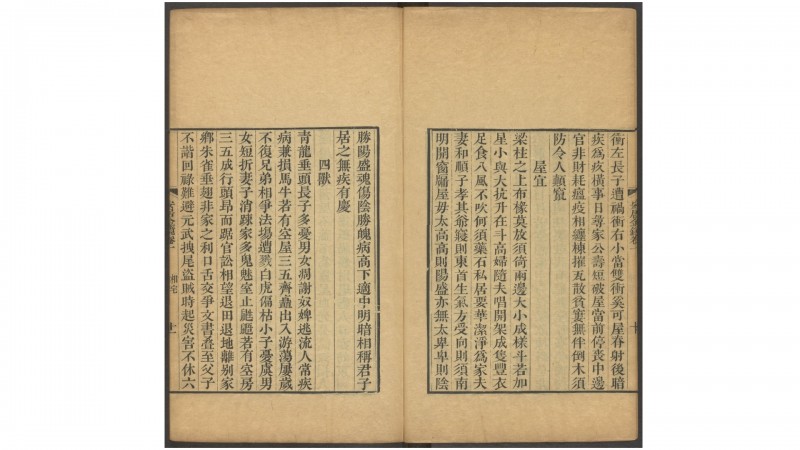 衝左長子遭禍衝右小當雙衝奚可屋脊射後暗
疾為疚橫事日尋家公壽短破屋當前停喪中邊
官非財耗瘟疫相纏棟摧瓦散貧窶無伴倒木須
防令人顛寵
屋宜
梁柱之上布椽莫放須倚兩邊大小成樣斗若加
星小與大抗升在斗高婦隨夫唱開架成隻豐衣
足食八風不吹何須藥石私居要華潔淨為家夫
妻和順子孝其爺寢則東首生氣方受向則須南
明開窗牖屋毋太高高則陽盛亦無太卑卑則陰
十
勝陽盛魂傷陰勝魄病高下適中明暗相稱君子
居之無疾有慶
四獸
青龍垂頭長子多憂男女凋謝奴婢逃流人常疾
病兼損馬牛若有空屋三五齊鱻出入游蕩屢歲
不復兄弟相爭法場遭戮白虎偏枯小子憂虞男
女短折妻子消踈家多鬼魅室止飂飂若有空房
三五成行頭昂而踞官訟相望退田退地離别家
鄉朱雀垂翅非家之利口舌交爭文書沓至父子
不諧回祿難避元武拽尾盜賊時起災害不休六
卷一
相宅
十一